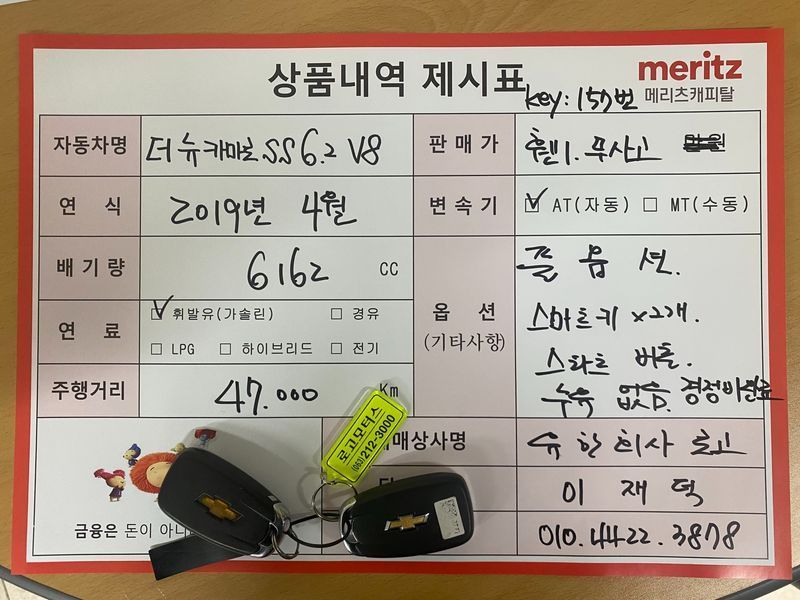 상품내역 제시표
meritz
메리츠캐피탈
key: 157번
자동차명 더뉴카마로 SS 6.2 V8
판매가 무사고
연식 2019년 4월
변속기 ☑ AT(자동) ☐ MT(수동)
배기량 6162 CC
옵션
(기타사항)
풀옵션.
스마트키 x2개.
스타트 버튼.
누유 없슴. 경정비완료
연료 ☑ 휘발유(가솔린) ☐ 경유
☐ LPG ☐ 하이브리드 ☐ 전기
주행거리 47.000 Km
로고모터스
(063)212-3000
매매상사명 유한회사 로고
이재덕
010.4422.3878
금융은 돈이 아니